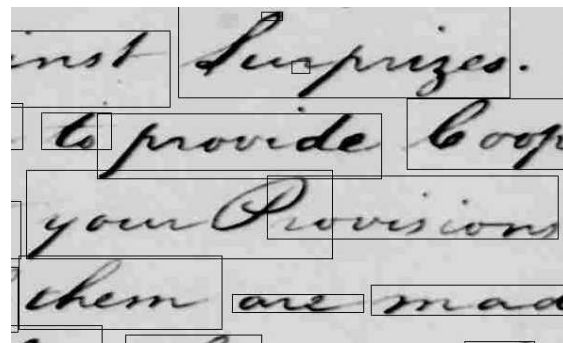 inst Surprizes.
to provide Coop
your Provisions
them are mad